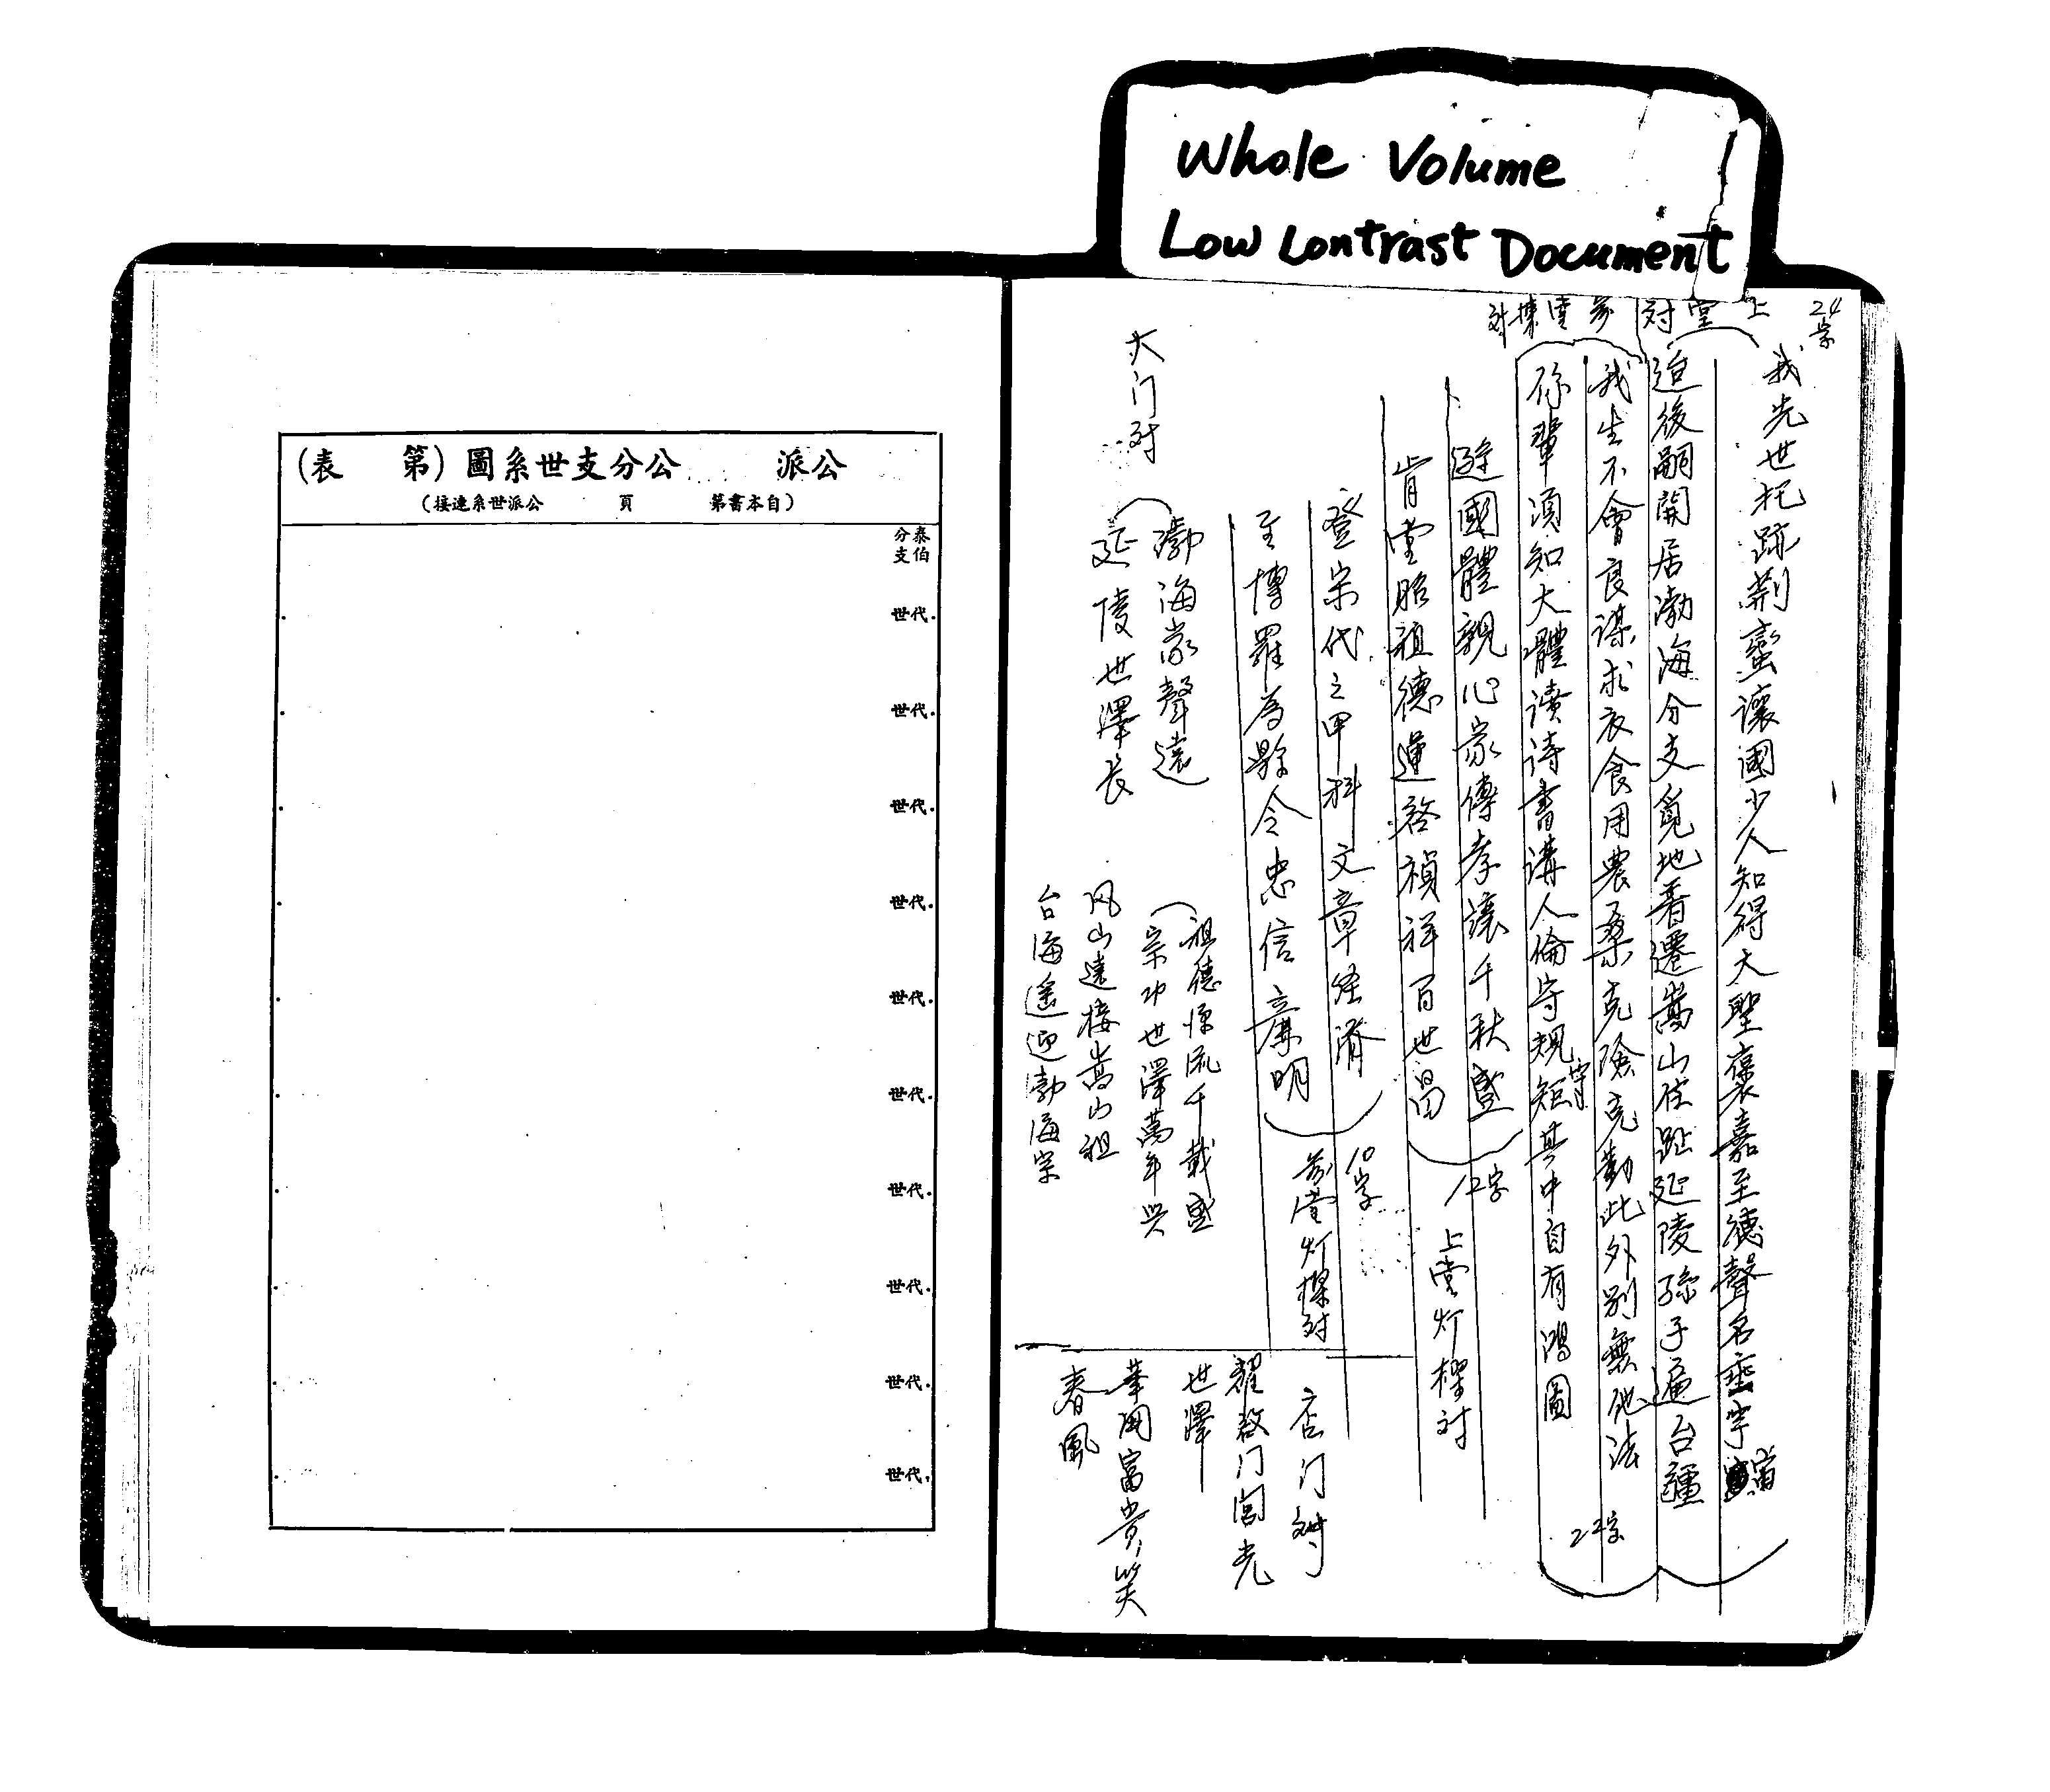 Whole Volume
Low Contrast Document
24字
上堂対
我先世托跡荆蠻讓國少人知得大聖褒嘉至德聲名垂宇宙
迨後嗣開居渤海分支覓地著遷嵩山住趾延陵孫子遍台疆
参堂棟対
我生不會良謀求衣食用農桑克險克勤此外別無他法
你輩須知大體读诗書講人倫守規矩其中自有鴻圖
22字
遜國體親心家傳孝讓千秋盛
肯堂昭祖德運啓禎祥百世昌
12字
上堂灯樑対
登宋代之甲科文章经濟
至博羅為縣令忠信廉明
10字
参堂灯樑対
大门対
渤海家聲遠
延陵世澤长
祖德源流千載盛
宗功世澤萬年兴
风山遠接嵩山祖
台海遙迎渤海宗
店门対
耀啟门閭光
世澤
華開富贵笑
春風
公派　公分支世系圖(第　表)
(自本書第　頁　公派世系連接)
泰伯
分支
世代
世代
世代
世代
世代
世代
世代
世代
世代
世代